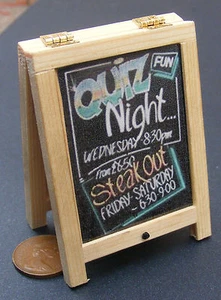 QUIZ
FUN
Night...
WEDNESDAY 8:30pm
from $6.50
Steak Out
FRIDAY - SATURDAY
- 6:30-9:00